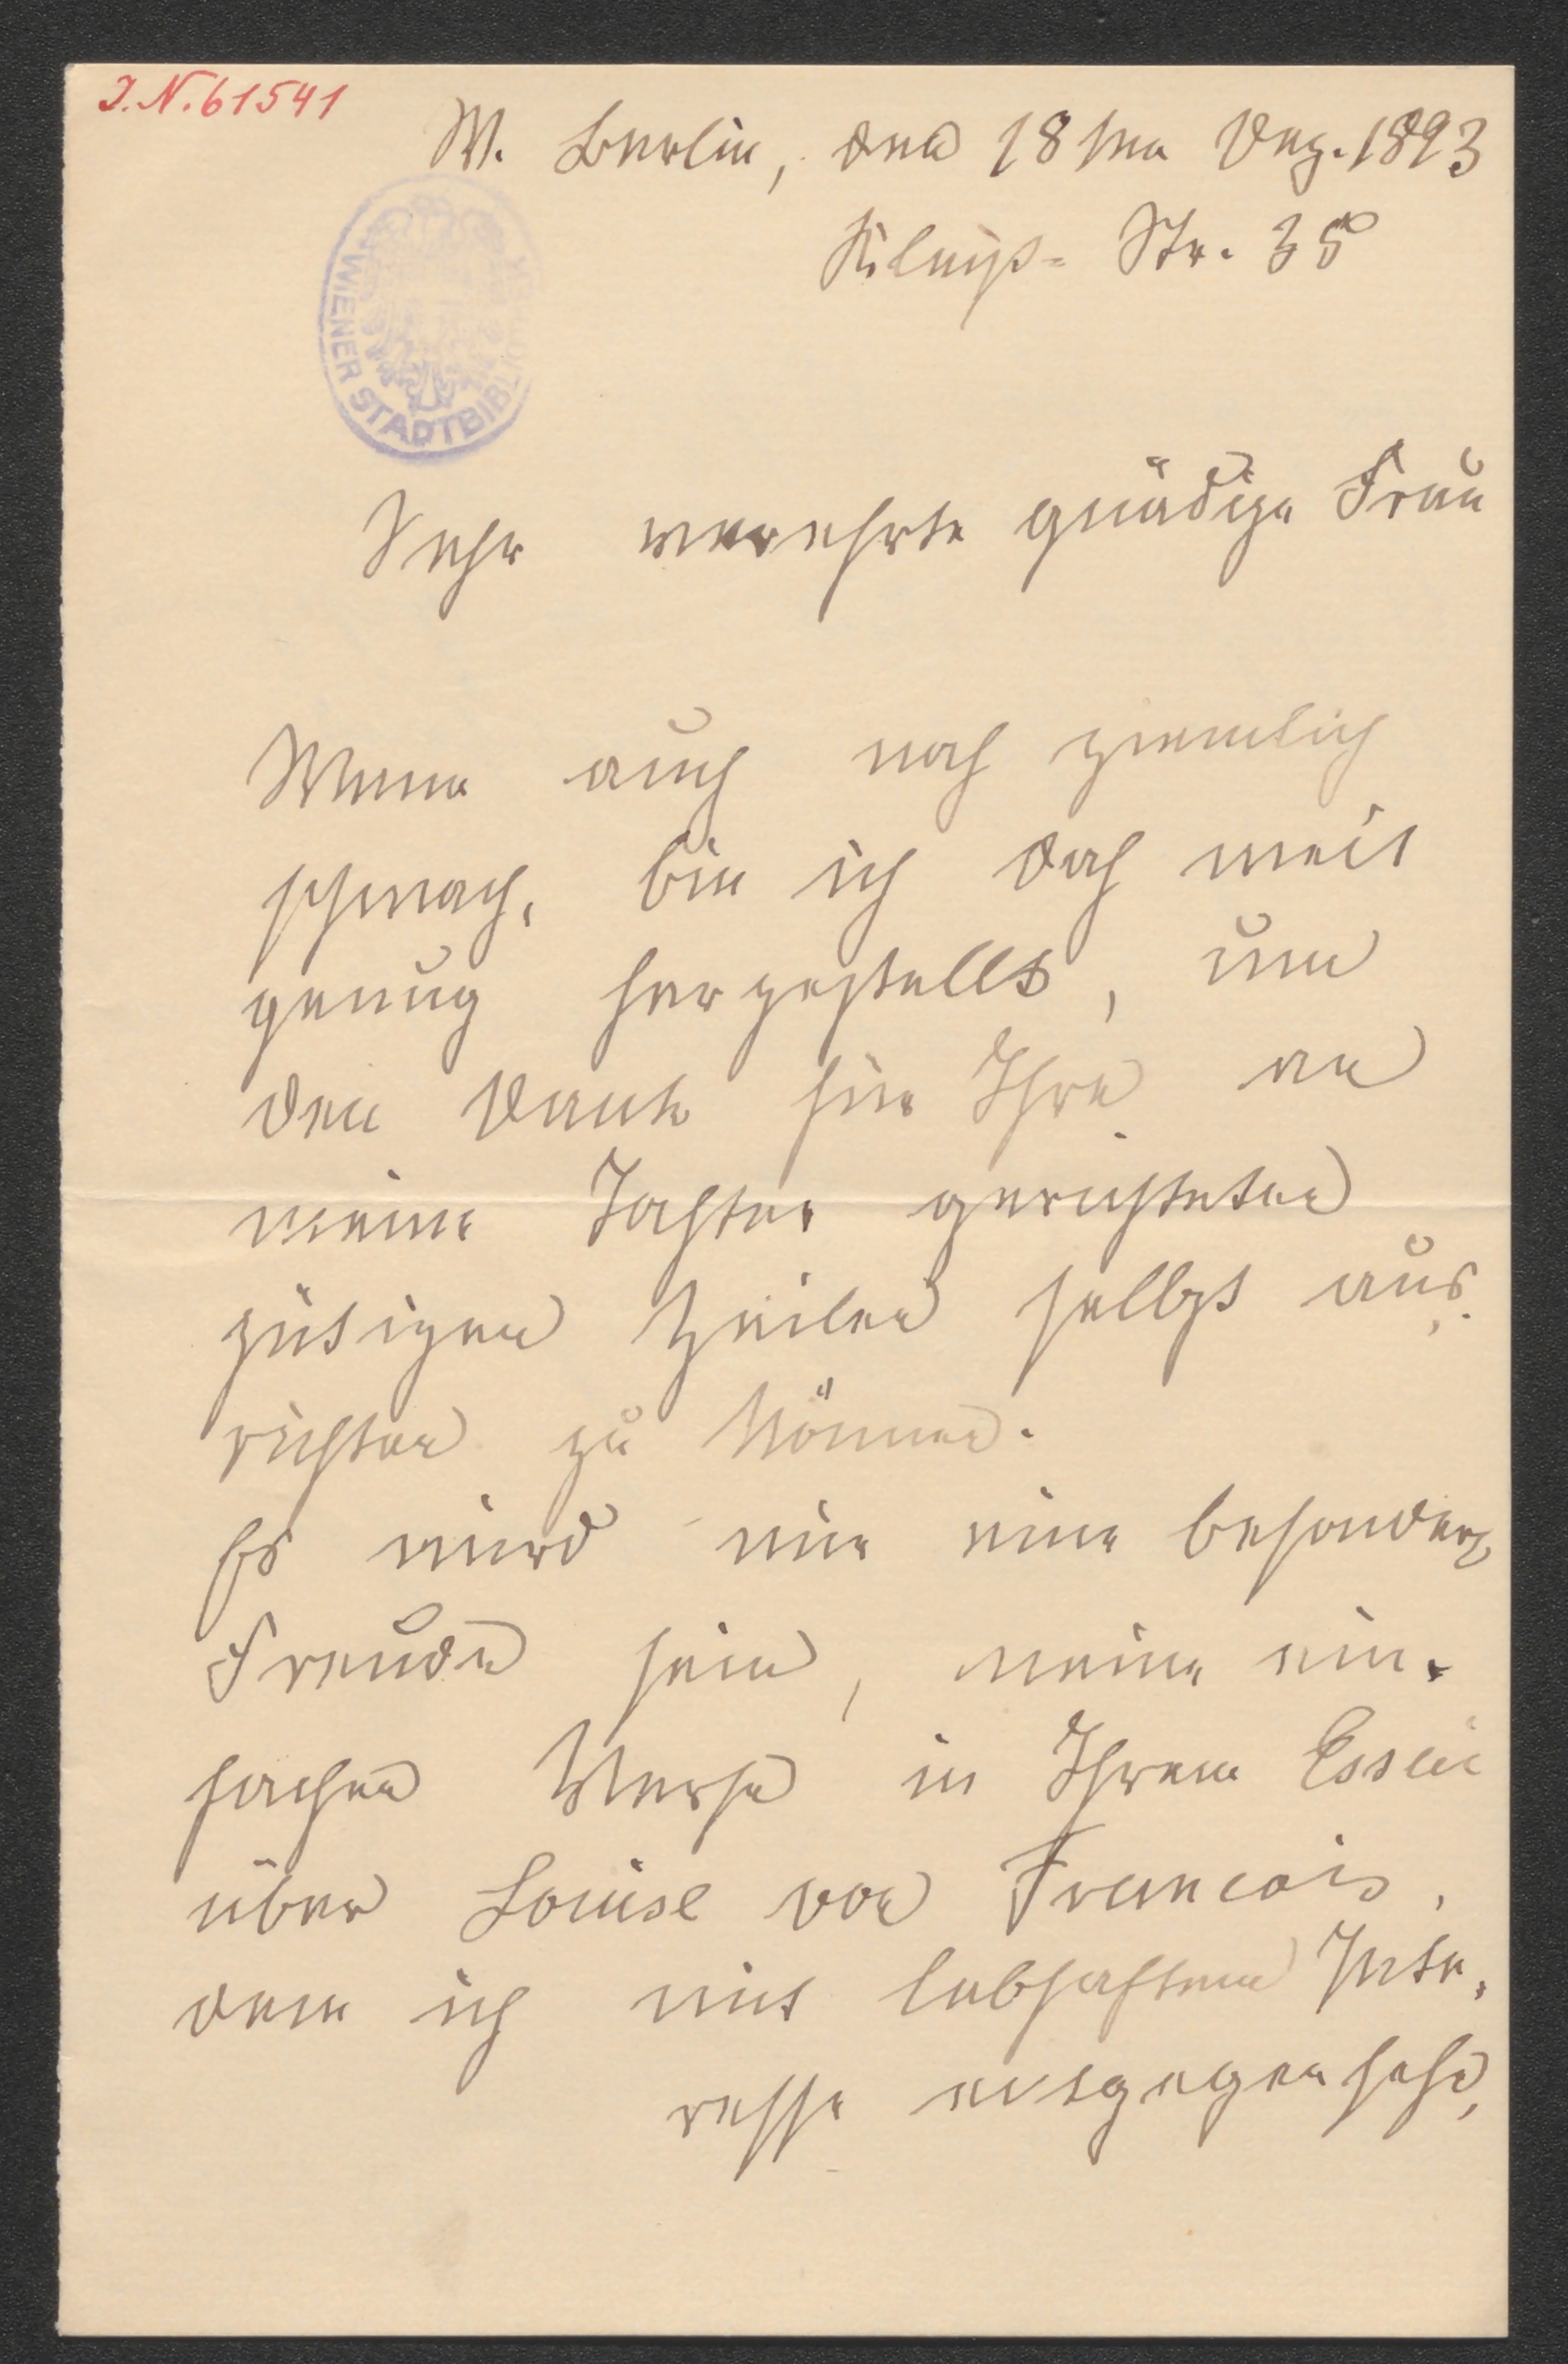 J.N. 61541
W. Berlin, den 18ten Dez. 1893
Kleist- Str. 35
WIENER STADTBIBLIOTHEK
Sehr verehrte gnädige Frau
Wenn auch noch ziemlich
schwach, bin ich doch weit
genug hergestellt, um
den Dank für Ihre an
meine Tochter gerichteten
gütigen Zeilen selbst aus-
richten zu können.
Es wird mir eine besondere
Freude sein, meine ein-
fachen Verse in Ihrem Essai
über Louise von Francois,
dem ich mit lebhaftem Inte-
resse entgegensehe,